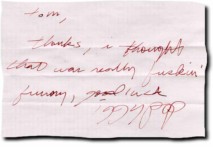 tom,
thanks, i thought
that was really fuckin'
funny, good luck